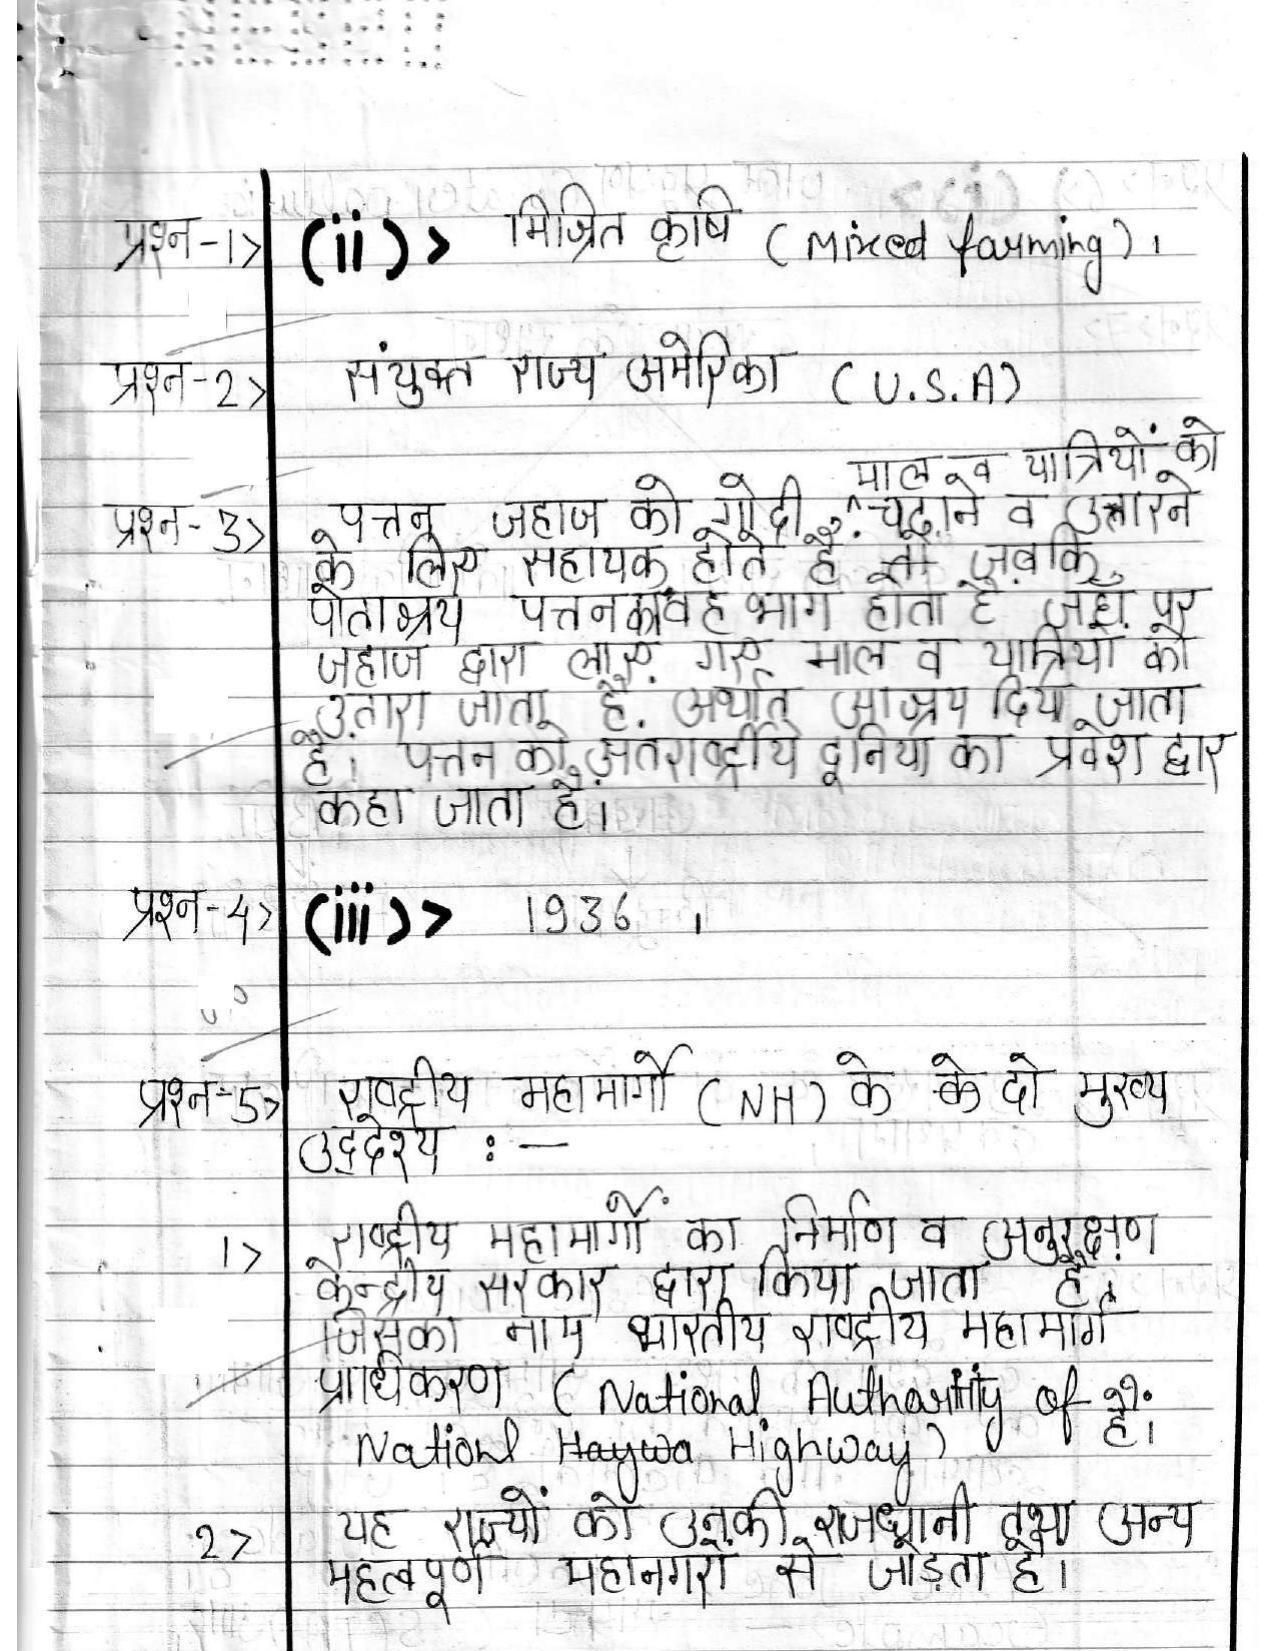 प्रश्न-1> (ii)> मिश्रित कृषि (Mixed farming)।
प्रश्न-2> संयुक्त राज्य अमेरिका (U.S.A)
माल व यात्रियों को
प्रश्न-3> पत्तन जहाज को गोदी, ^ चढ़ाने व उतारने
के लिए सहायक होते है जबकि
पोताश्रय पत्तन का वह भाग होता है जहाँ पर
जहाज द्वारा लाए गए माल व यात्रियों को
उतारा जाता है. अर्थात् आश्रय दिया जाता
है। पत्तन को अंतराष्ट्रीय दूनिया का प्रवेश द्वार
कहा जाता है।
प्रश्न-4> (iii)> 1936 ।
प्रश्न-5> राष्ट्रीय महामार्गों (NH) के के दो मुख्य
उद्देश्य :—
1> राष्ट्रीय महामार्गों का निर्माण व अनुरक्षण
केन्द्रीय सरकार द्वारा किया जाता है,
जिसका नाम भारतीय राष्ट्रीय महामार्ग
प्राधिकरण (National Authority of
Nationl Haywa Highway) है।
2> यह राज्यों को उनकी राजधानी तथा अन्य
महत्वपूर्ण महानगरों से जोड़ता है।